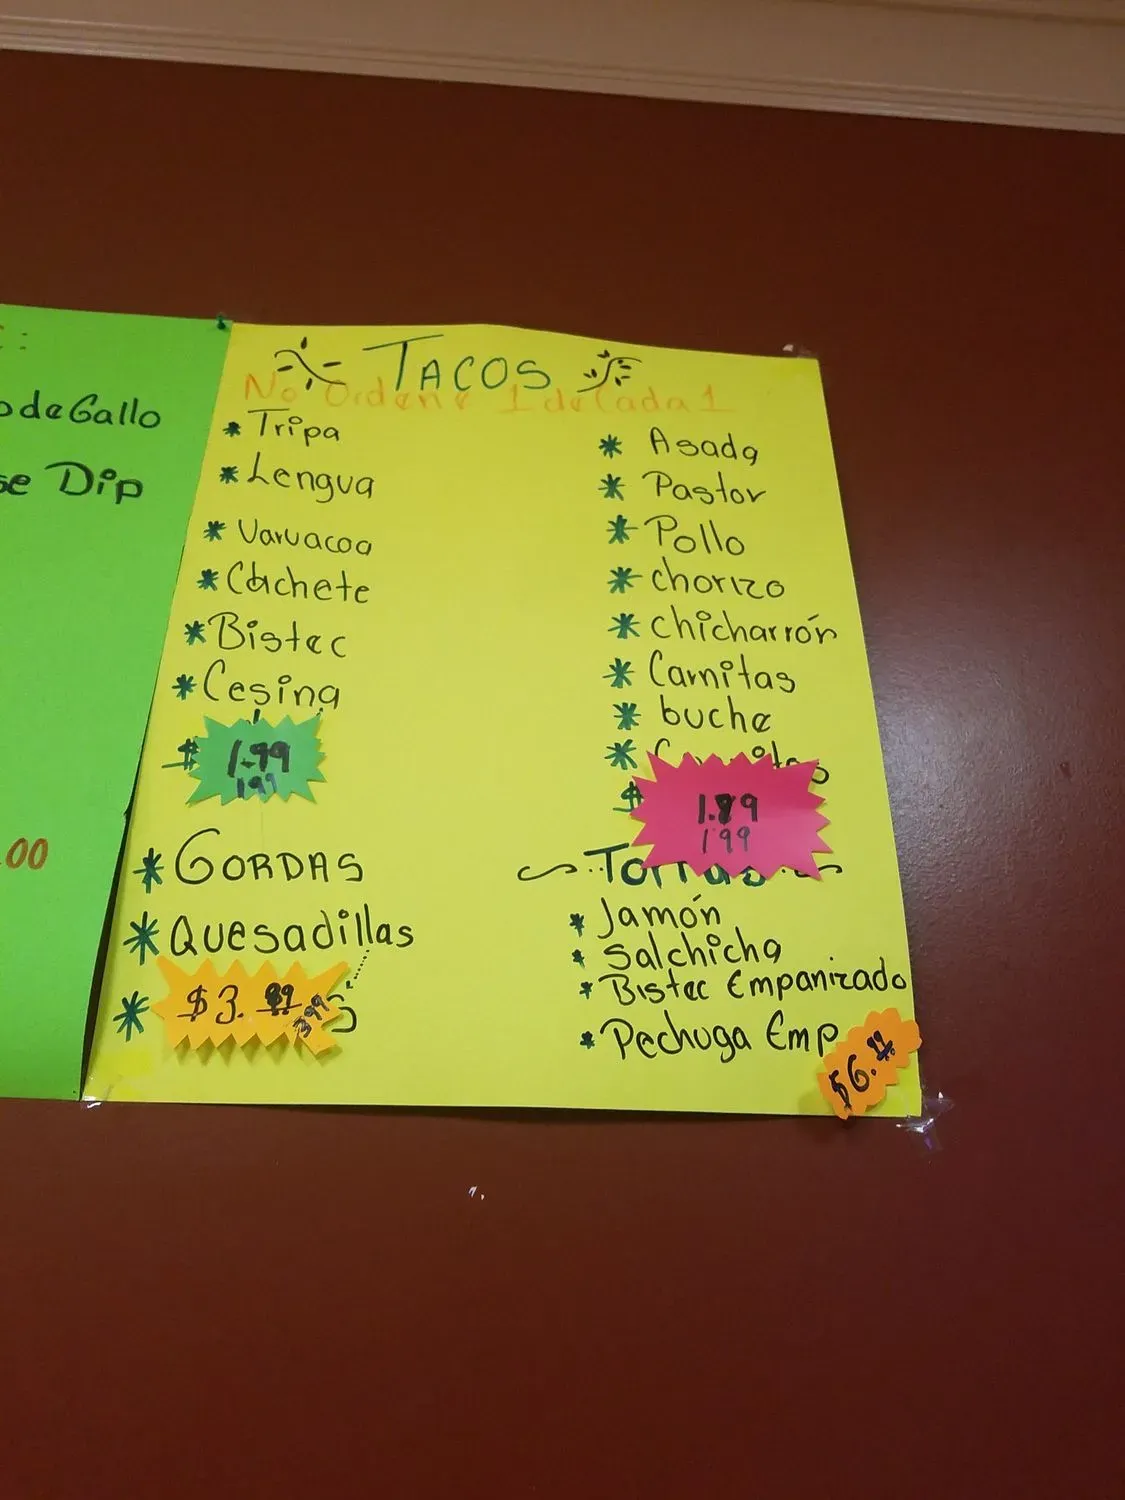 :
odeGallo
se Dip
.00
TACOS
No Ordene 1 de Cada 1
* Tripa
* Lengua
* Varvacoa
* Cachete
* Bistec
* Cesina
$ 1.99
199
* GORDAS
* Quesadillas
* $3.99
399
* Asada
* Pastor
* Pollo
* chorizo
* chicharrón
* Carnitas
* buche
*
$ 1.89
199
Tortas
* Jamón
* Salchicha
* Bistec Empanizado
* Pechuga Emp
$6.99